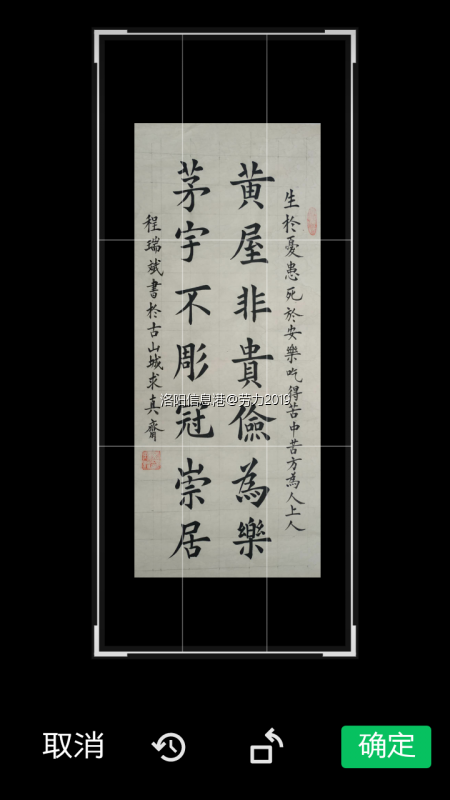 生於憂患死於安樂吃得苦中苦方為人上人
黄屋非貴儉為樂
茅宇不彫冠崇居
程瑞斌書於古山城求真齋
洛阳信息港@劳力2019
取消
确定